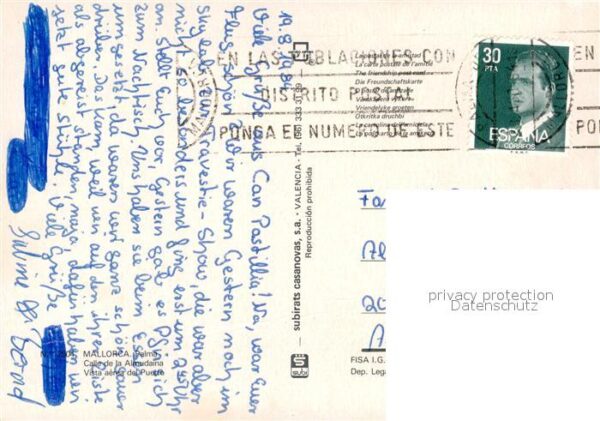 19.8.1981
Viele Grüße aus Can Pastillia! Na, war Euer
Flug schön? Wir waren Gestern noch im
Skylab, eine Travestie-Show, die war aber
nicht so besonders und fing erst um 2⁰⁰ Uhr
an. Stellt Euch vor, Gestern gab es Pfirsich
zum Nachtisch. Uns haben sie beim Essen
umgesetzt, da waren wir ganz schön sauer
drüber. Darum weil wir auf der ihrer Liste
als abgereist standen, naja dafür haben wir
jetzt gute Stühle. Viele Grüße
Sabine
Bernd
EN LAS POBLACIONES CON
DISTRITO POSTAL
PONGA EL NUMERO DE ESTE
EN
PO
30
PTA
ESPAÑA
CORREOS
La carte postale de l'amitié
The friendship post card
Die Freundschaftskarte
Vriendelijke groeten
Otkritka druchbi
subirats casanovas, s.a. - VALENCIA - Tel. (96) 333 31 89
Reproducción prohibida
MALLORCA. Palma
Calle de la Almudaina
Vista aérea del Puerto
FISA I.G.
Dep. Lega
20
privacy protection
Datenschutz